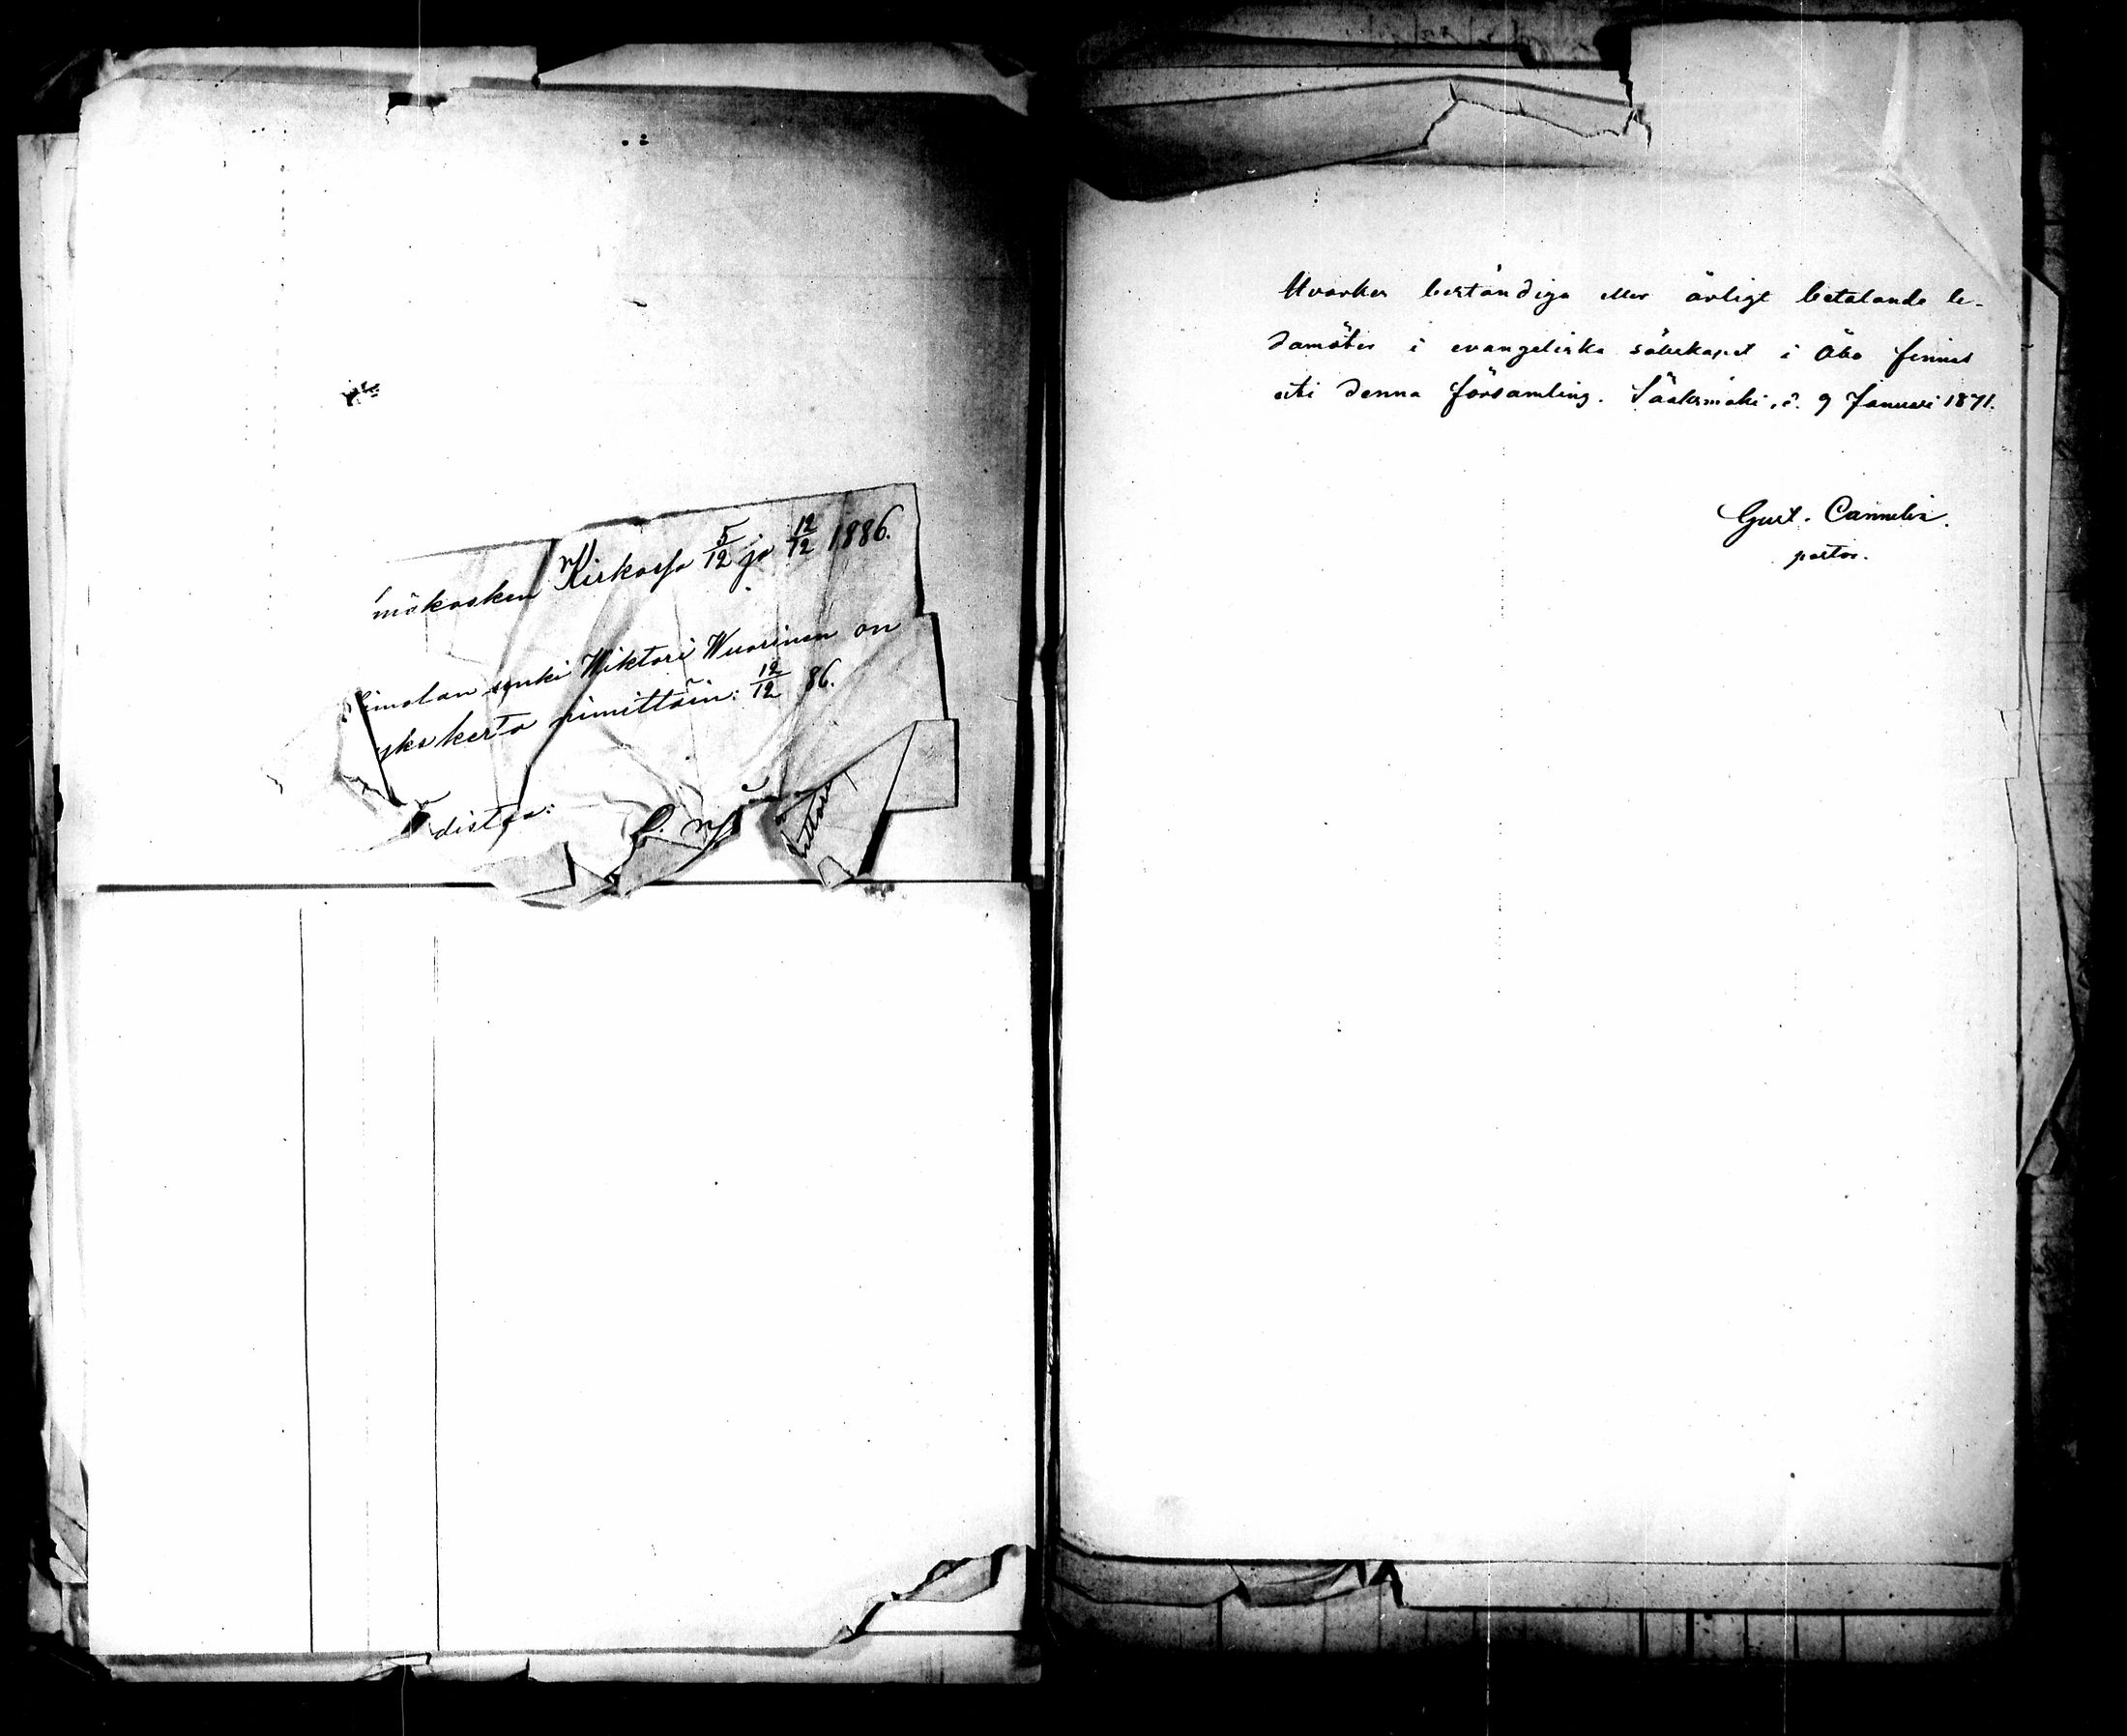 mäkosken Kirkossa 5/12 ja 12/12 1886.
renki Wiktori Wuorinen on
yksi kerta nimittäin: 12/12 86.
distaa:
Hvarken beständiga eller årligt betalande le-
damöter i evangeliska sällskapet i Åbo finnes
uti denna församling. Sääksmäki, d. 9 Januari 1871.
Gust. Cannelin.
pastor.